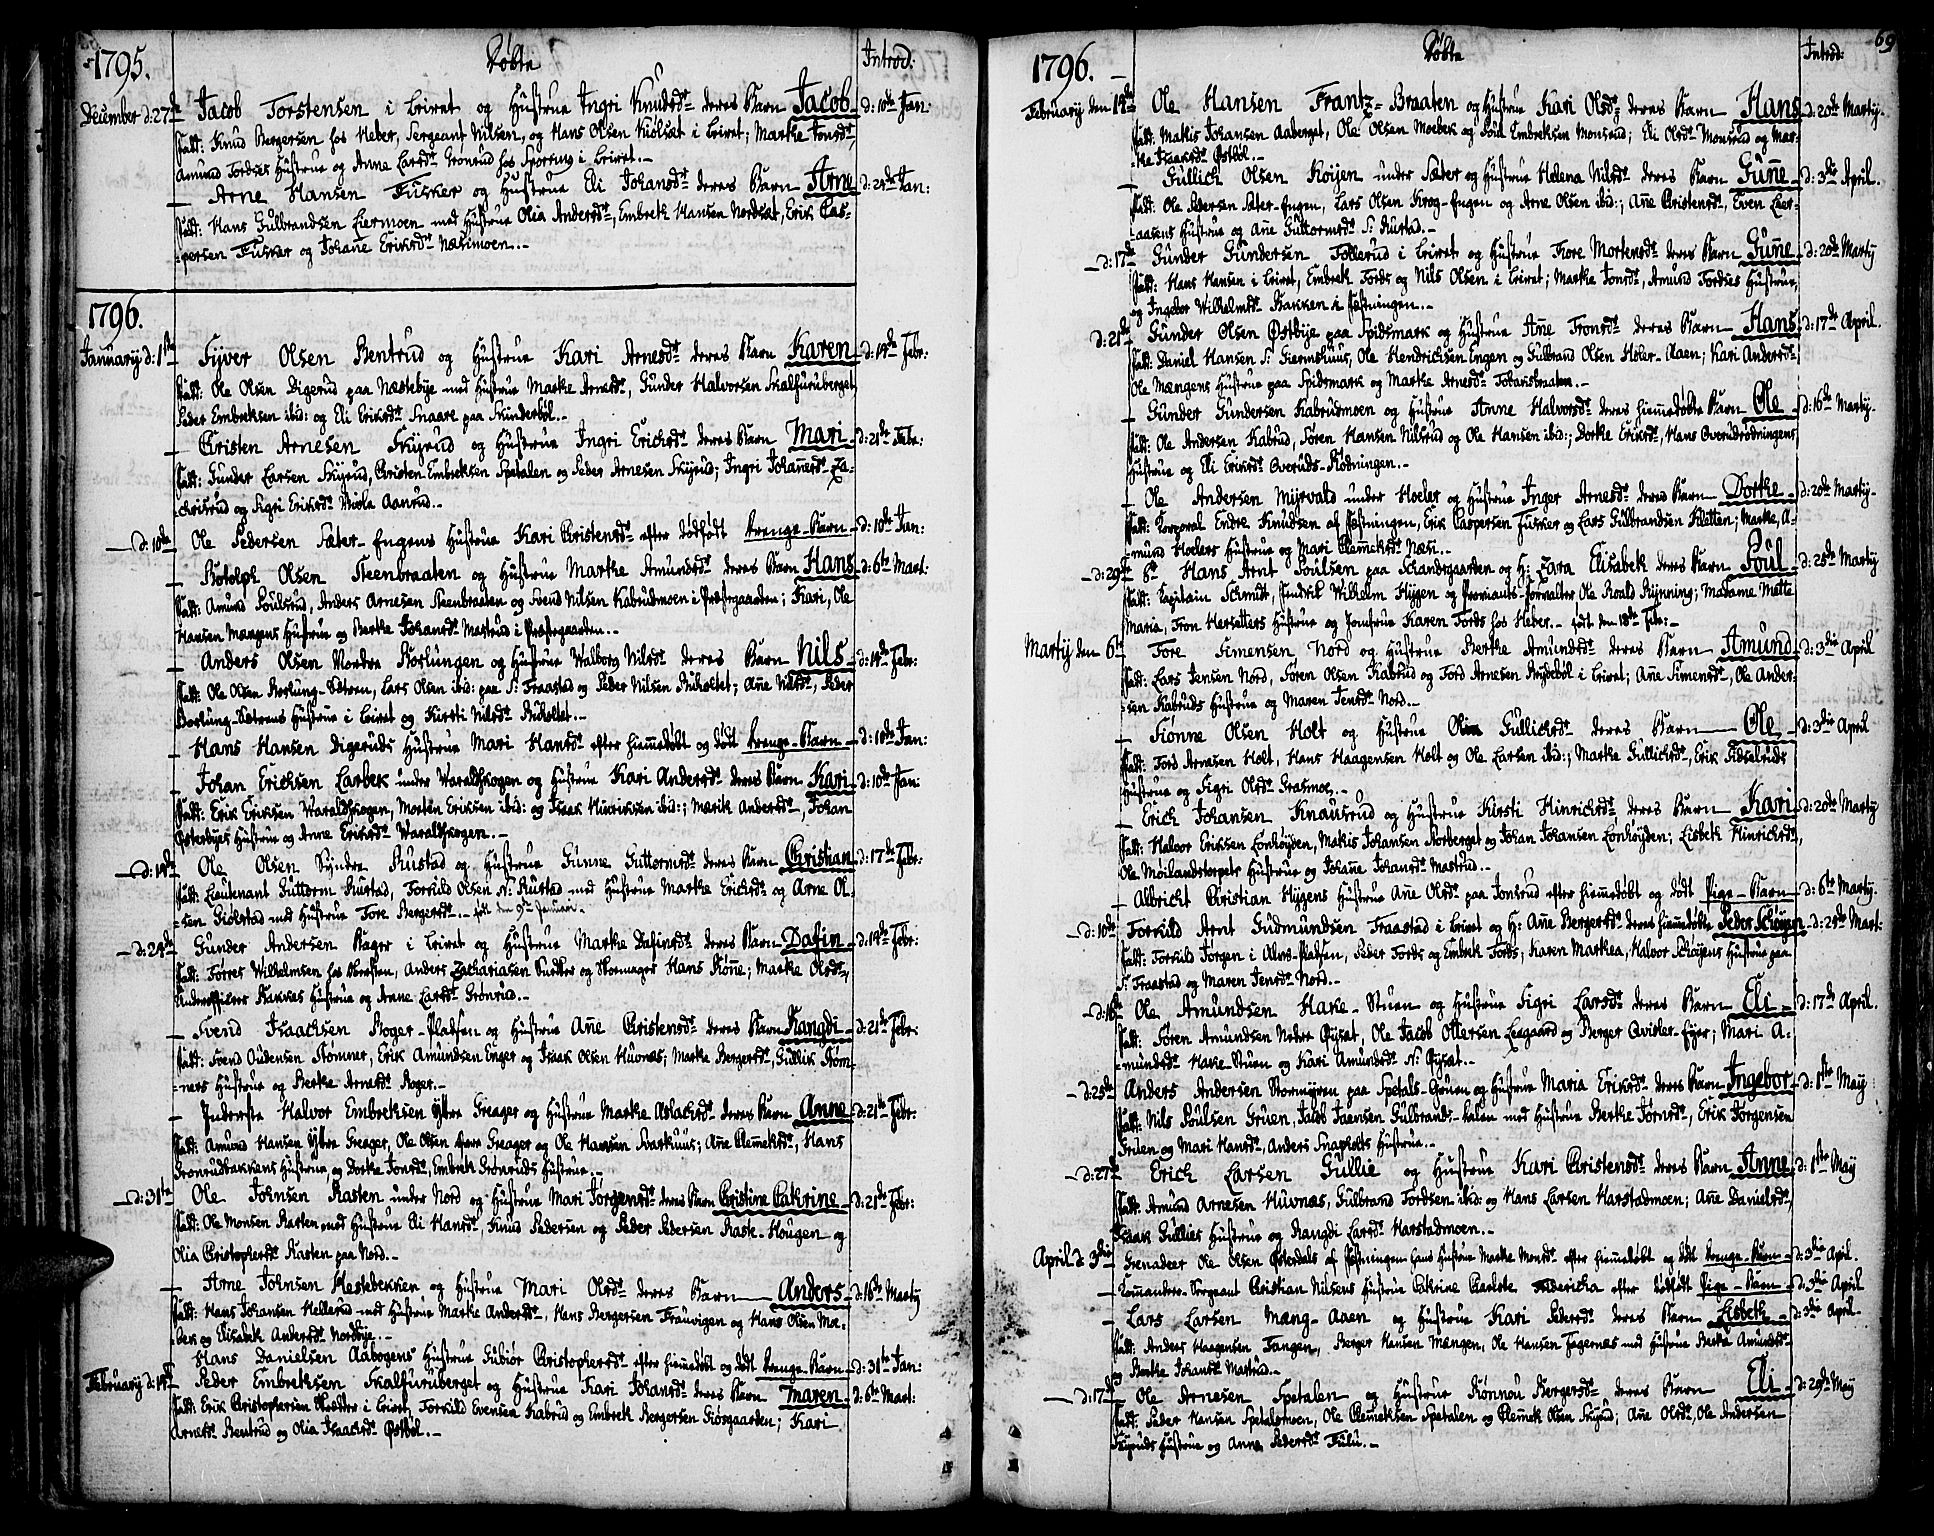 1795.
Døbte
Introd:
December d: 27de Jacob Torstensen i Leiret og Hustrue Ingri Knudsd: deres Barn Jacob d: 10de Jan:
Fadd: Knud Bergersen hos Heber, Sergeant Nilsen, og Hans Olsen Kiølsæt i Leiret; Marthe Tonsd:,
Amund Tordses Hustrue og Anne Larsd: Grønrud hos Sporting i Leiret.
Arne Hansen Fisker og Hustrue Eli Johansd: deres Barn Arne d: 24de Jan:
Fadd: Hans Gulbrandsen Liermoen med Hustrue Olia Andersd:, Embret Hansen Nordsæt, Erik Cas-
persen Fisker og Johanne Eriksd: Næsimoen.
1796.
January d: 1ste Syver Olsen Bentrud og Hustrue Kari Arnesd: deres Barn Karen d: 14de Febr:
Fadd: Ole Olsen Digerud paa Næstebye med Hustrue Marthe Arnesd:, Gunder Halvorsen Skalfuruberget,
Peder Embretsen ibid: og Eli Eriksd: Snaare paa Skinderbøl.
Christen Arnesen Skyrud og Hustrue Ingri Erichsd: deres Barn Mari d: 21de Febr:
Fadd: Gunder Larsen Skyrud, Christen Embretsen Spetalen og Peder Arnesen Skyrud; Ingri Johansd: Za-
chrisrud og Sigri Eriksd: Aanrud.
d: 10de Ole Pedersen Sæter-Engens Hustrue Kari Christensd: efter dødfødt drenge-Barn d: 10de Jan:
Rotolph Olsen Steenbraaten og Hustrue Marthe Amundsd: deres Barn Hans d: 6te Mart:
Fadd: Amund Poulsrud, Anders Arnesen Steenbraaten og Svend Nilsen Kabrudmoen i Præstegaarden; Kari, Ole
Hansen Mængens Hustrue og Berthe Johansd: Mastrud i Præstegaarden.
Anders Olsen Nordre Børlungen og Hustrue Walborg Nilsd: deres Barn Nils d: 14de Febr:
Fadd: Ole Olsen Børlung-Sætren, Lars Olsen ibid: paa S: Fraastad og Peder Nilsen Buholtet; Anne Nilsd:, Peder
Børlung-Sætrens Hustrue i Leiret og Kirsti Nilsd: Buholtet.
Hans Hansen Digeruds Hustrue Mari Hansd: efter hiemedøbt og død drenge-Barn d: 10de Jan:
Johan Erichsen Larbek under Waraldskogen og Hustrue Kari Andersd: deres Barn Kari d: 10de Jan:
Fadd: Erik Eriksen Waraldskogen, Morten Eriksen ibid: og Isaak Hinriksen ibid:; Marit Andersd:, Johan
Østerbyes Hustrue og Anne Eriksd: Waraldskogen.
d: 14de Ole Olsen Syndre Rustad og Hustrue Gunne Guttormsd: deres Barn Christian d: 17de Febr:
Fadd: Lieutenant Guttorm Rustad, Torkild Olsen N: Rustad med Hustrue Marthe Erichsd: og Arne Ol-
sen Giølstad med Hustrue Tore Bergersd:. født den 9de Januari.
d: 24de Gunder Andersen Bager i Leiret og Hustrue Marthe Dafinsd: deres Barn Dafin d: 14de Febr:
Fadd: Torres Wilhelmsen hos Obersten, Anders Zachariasen Snidker og Skomager Hans Rønne; Marthe Olsd:,
Underofficer Bakkes Hustrue og Anne Larsd: Grønrud.
Svend Isaachsen Roger-Pladsen og Hustrue Anne Christensd: deres Barn Rangdi d: 21de Febr:
Fadd: Svend Oudensen Rømner, Erik Amundsen Enger og Isaak Olsen Huvnæs; Marthe Bergersd:, Gullik Røm-
ners Hustrue og Berthe Arnesd: Roger.
Inderste Halvor Embretsen Ystre Greager og Hustrue Marthe Aslachsd: deres Barn Anne d: 21de Febr:
Fadd: Amund Hansen Ystre Greager, Ole Olsen Greager og Ole Hansen Svarthuus; Anne Clemetsd:, Hans
Grønrudbakkens Hustrue, og Dorthe Jonsd:, Embret Grønruds Hustrue.
d: 31te Ole Johnsen Rasten under Nord og Hustrue Mari Jørgensd: deres Barn Christine Cathrine d: 21de Febr:
Fadd: Ole Monsen Rasten med Hustrue Eli Hansd:, Knud Pedersen og Peder Pedersen Rast-Hougen og
Olia Christophersd: Rasten paa Nord.
Arne Johnsen Hestebekken og Hustrue Mari Olsd: deres Barn Anders d: 18de Marty
Fadd: Hans Johansen Hellerud med Hustrue Marthe Andersd:, Hans Bergersen Trauvigen og Hans Olsen Moe-
bek og Elisabeth Andersd: Nordbye.
Hans Danielsen Aabogens Hustrue Gubiør Christophersd: efter hiemedøbt og død drenge-Barn d: 31te Jan:
February d: 14de Peder Embretsen Skalfuruberget og Hustrue Kari Johansd: deres Barn Maren d: 6te Mart:
Fadd: Erik Christophersen i Leiret, Torkild Evensen Kabrud og Embret Bergersen Giørsgaarden; Kari
Arnesd: Bentrud og Olia Isaachsd: Østbøl.
69
1796.
Døbte
Introd:
February den 14de Ole Hansen Frantz-Braaten og Hustrue Kari Olsd: deres Barn Hans d: 20de Marty.
Fadd: Mathis Johansen Aaberget, Ole Olsen Moebek og Poul Embretsen Monsrud; Eli Olsd: Monsrud og Mar-
the Isaaksd: Østbøl.
Gullich Olsen Køyen under Sæter og Hustrue Helena Nilsd: deres Barn Gunne d: 3die April.
Fadd: Ole Pedersen Sæter-Engen, Lars Olsen Krog-Engen og Arne Olsen ibid:; Anne Christensd:, Even Lier-
aasens Hustrue og Anne Guttormsd: S: Rustad.
d: 17de Gunder Gundersen Tollerud i Leiret og Hustrue Tore Mortensd: deres Barn Gunne d: 20de Marty
Fadd: Hans Hansen i Leiret, Embret Tords og Nils Olsen i Leiret; Marthe Tonsd:, Amund Tordses Hustrue,
og Ingebor Wilhelmsd: Bakken i Fæstningen.
d: 21de Gunder Olsen Østbye paa Spidsmark og Hustrue Anne Tronsd: deres Barn Hans d: 17de April.
Fadd: Daniel Hansen S: Giermshuus, Ole Hendrichsen Engen og Gulbrand Olsen Holer-Aaen; Kari Andersd:,
Ole Mængens Hustrue paa Spidsmark og Marthe Arnesd: Johansbraaten.
Gunder Gundersen Kabrudmoen og Hustrue Anne Halvorsd: deres hiemedøbte Barn Ole d: 16de Marty.
Fadd: Ole Andersen Kabrud, Søren Hansen Nilsrud og Ole Hansen ibid:; Dorthe Eriksd:, Hans Overudrødningens
Hustrue og Eli Eriksd: Overuds-Rødningen.
Ole Andersen Myrvald under Hoeler og Hustrue Inger Arnesd: deres Barn Dorthe d: 20de Marty
Fadd: Korporal Endre Knudsen af Fæstningen, Erik Caspersen Fisker og Lars Gulbrandsen Kletten; Marthe, A-
mund Hoelers Hustrue og Mari Clemetsd: Næsi.
d: 29de Hr Hans Arnt Poulsen paa Schandsgaarden og H: Zara Elisabeth deres Barn Poul d: 28de Marty
Fadd: Kapitain Schmidt, Hendrik Wilhelm Hygen og Proviants-Forvalter Ole Roald Rynning; Madame Mette
Maria, Tron Hersetters Hustrue og Jomfrue Karen Tords hos Heber. født den 18de Febr:
Marty den 6te Tore Simensen Nord og Hustrue Berthe Amundsd: deres Barn Amund d: 3die April
Fadd: Lars Jensen Nord, Søren Olsen Kabrud og Tord Arnesen Brydebøl i Leiret; Anne Simensd:, Ole Ander-
sen Kabruds Hustrue og Maren Jensd: Nord.
Tiønne Olsen Holt og Hustrue Olia Gullichsd: deres Barn Ole d: 3die April
Fadd: Tord Arnesen Holt, Hans Haagensen Holt og Ole Larsen ibid:; Marthe Gullichsd:, Erik Tidselruds
Hustrue og Sigri Olsd: Grasmoe.
Erich Johansen Knausrud og Hustrue Kirsti Hinrichsd: deres Barn Kari d: 20de Marty
Fadd: Halvor Eriksen Lønhøyden, Mathis Johansen Norberget og Johan Johansen Lonhøyden; Lisbeth Hinrichsd:,
Ole Møilandstorpets Hustrue og Johanne Johansd: Mastrud.
Albricht Christian Hygens Hustrue Anne Olsd: paa Jonsrud efter hiemedøbt og død Pige-Barn d: 6te Marty.
d: 10de Torkild Arnt Gudmundsen Fraastad i Leiret og H: Anne Bergersd: deres hiemedøbte Peder Schøyen d: 24de Mart:
Fadd: Torkild Jørgen i Alms-Pladsen, Peder Tords og Embret Tords; Karen Marthea, Halvor Schøyens Hustrue paa
S: Fraastad og Maren Jensd: Nord.
d: 16de Ole Amundsen Hake-Stuen og Hustrue Sigri Larsd: deres Barn Eli d: 17de April.
Fadd: Søren Amundsen Nedre Øysæt, Ole Jacob Ottersen Leegaard og Berger Qvisler-Eyer; Mari A-
mundsd: Hake-Stuen og Kari Amundsd: N: Øysæt.
d: 25de Anders Andersen Stormyren paa Spetals-Gruen og Hustrue Maria Eriksd: deres Barn Ingebor d: 1ste May
Fadd: Nils Poulsen Gruen, Jacob Jaensen Gulbrands-Kalsen med Hustrue Berthe Jørnsd:, Erik Jørgensen
Gruen og Mari Hansd:, Anders Snapholts Hustrue.
d: 27de Erich Larsen Gullie og Hustrue Kari Christensd: deres Barn Anne d: 1ste May
Fadd: Amund Arnesen Huvnæs, Gulbrand Tordsen ibid: og Hans Larsen Harstadmoen; Anne Danielsd:,
Isaak Gullies Hustrue og Rangdi Larsd: Harstadmoen.
April d: 3die Grenadeer Ole Olsen Østerdals af Fæstningen hans Hustrue Marthe Monsd: efter hiemedøbt og død drenge-Barn d: 3die April.
Commandeer-Sergeant Christian Nilsens Hustrue Cathrine Charlotte Friderica efter dødfødt Pige-Barn d: 3die April
Lars Larsen Mæng-Aaen og Hustrue Kari Pedersd: deres Barn Lisbeth d: 3die April.
Fadd: Anders Haagensen Tangen, Berger Hansen Mængen, Ole Hansen Tagernæs med Hustrue Berthe Amundsd:
og Berthe Johansd: Mastrud.
d: 17de Ole Arnesen Spetalen og Hustrue Rønnou Bergersd: deres Barn Eli d: 29de May
Fadd: Peder Hansen Spetalsmoen, Ole Clemetsen Spetalen og Clemet Olsen Skyrud; Anne Olsd:, Ole Andersen
Skyruds Hustrue og Anne Pedersd: Fulu.